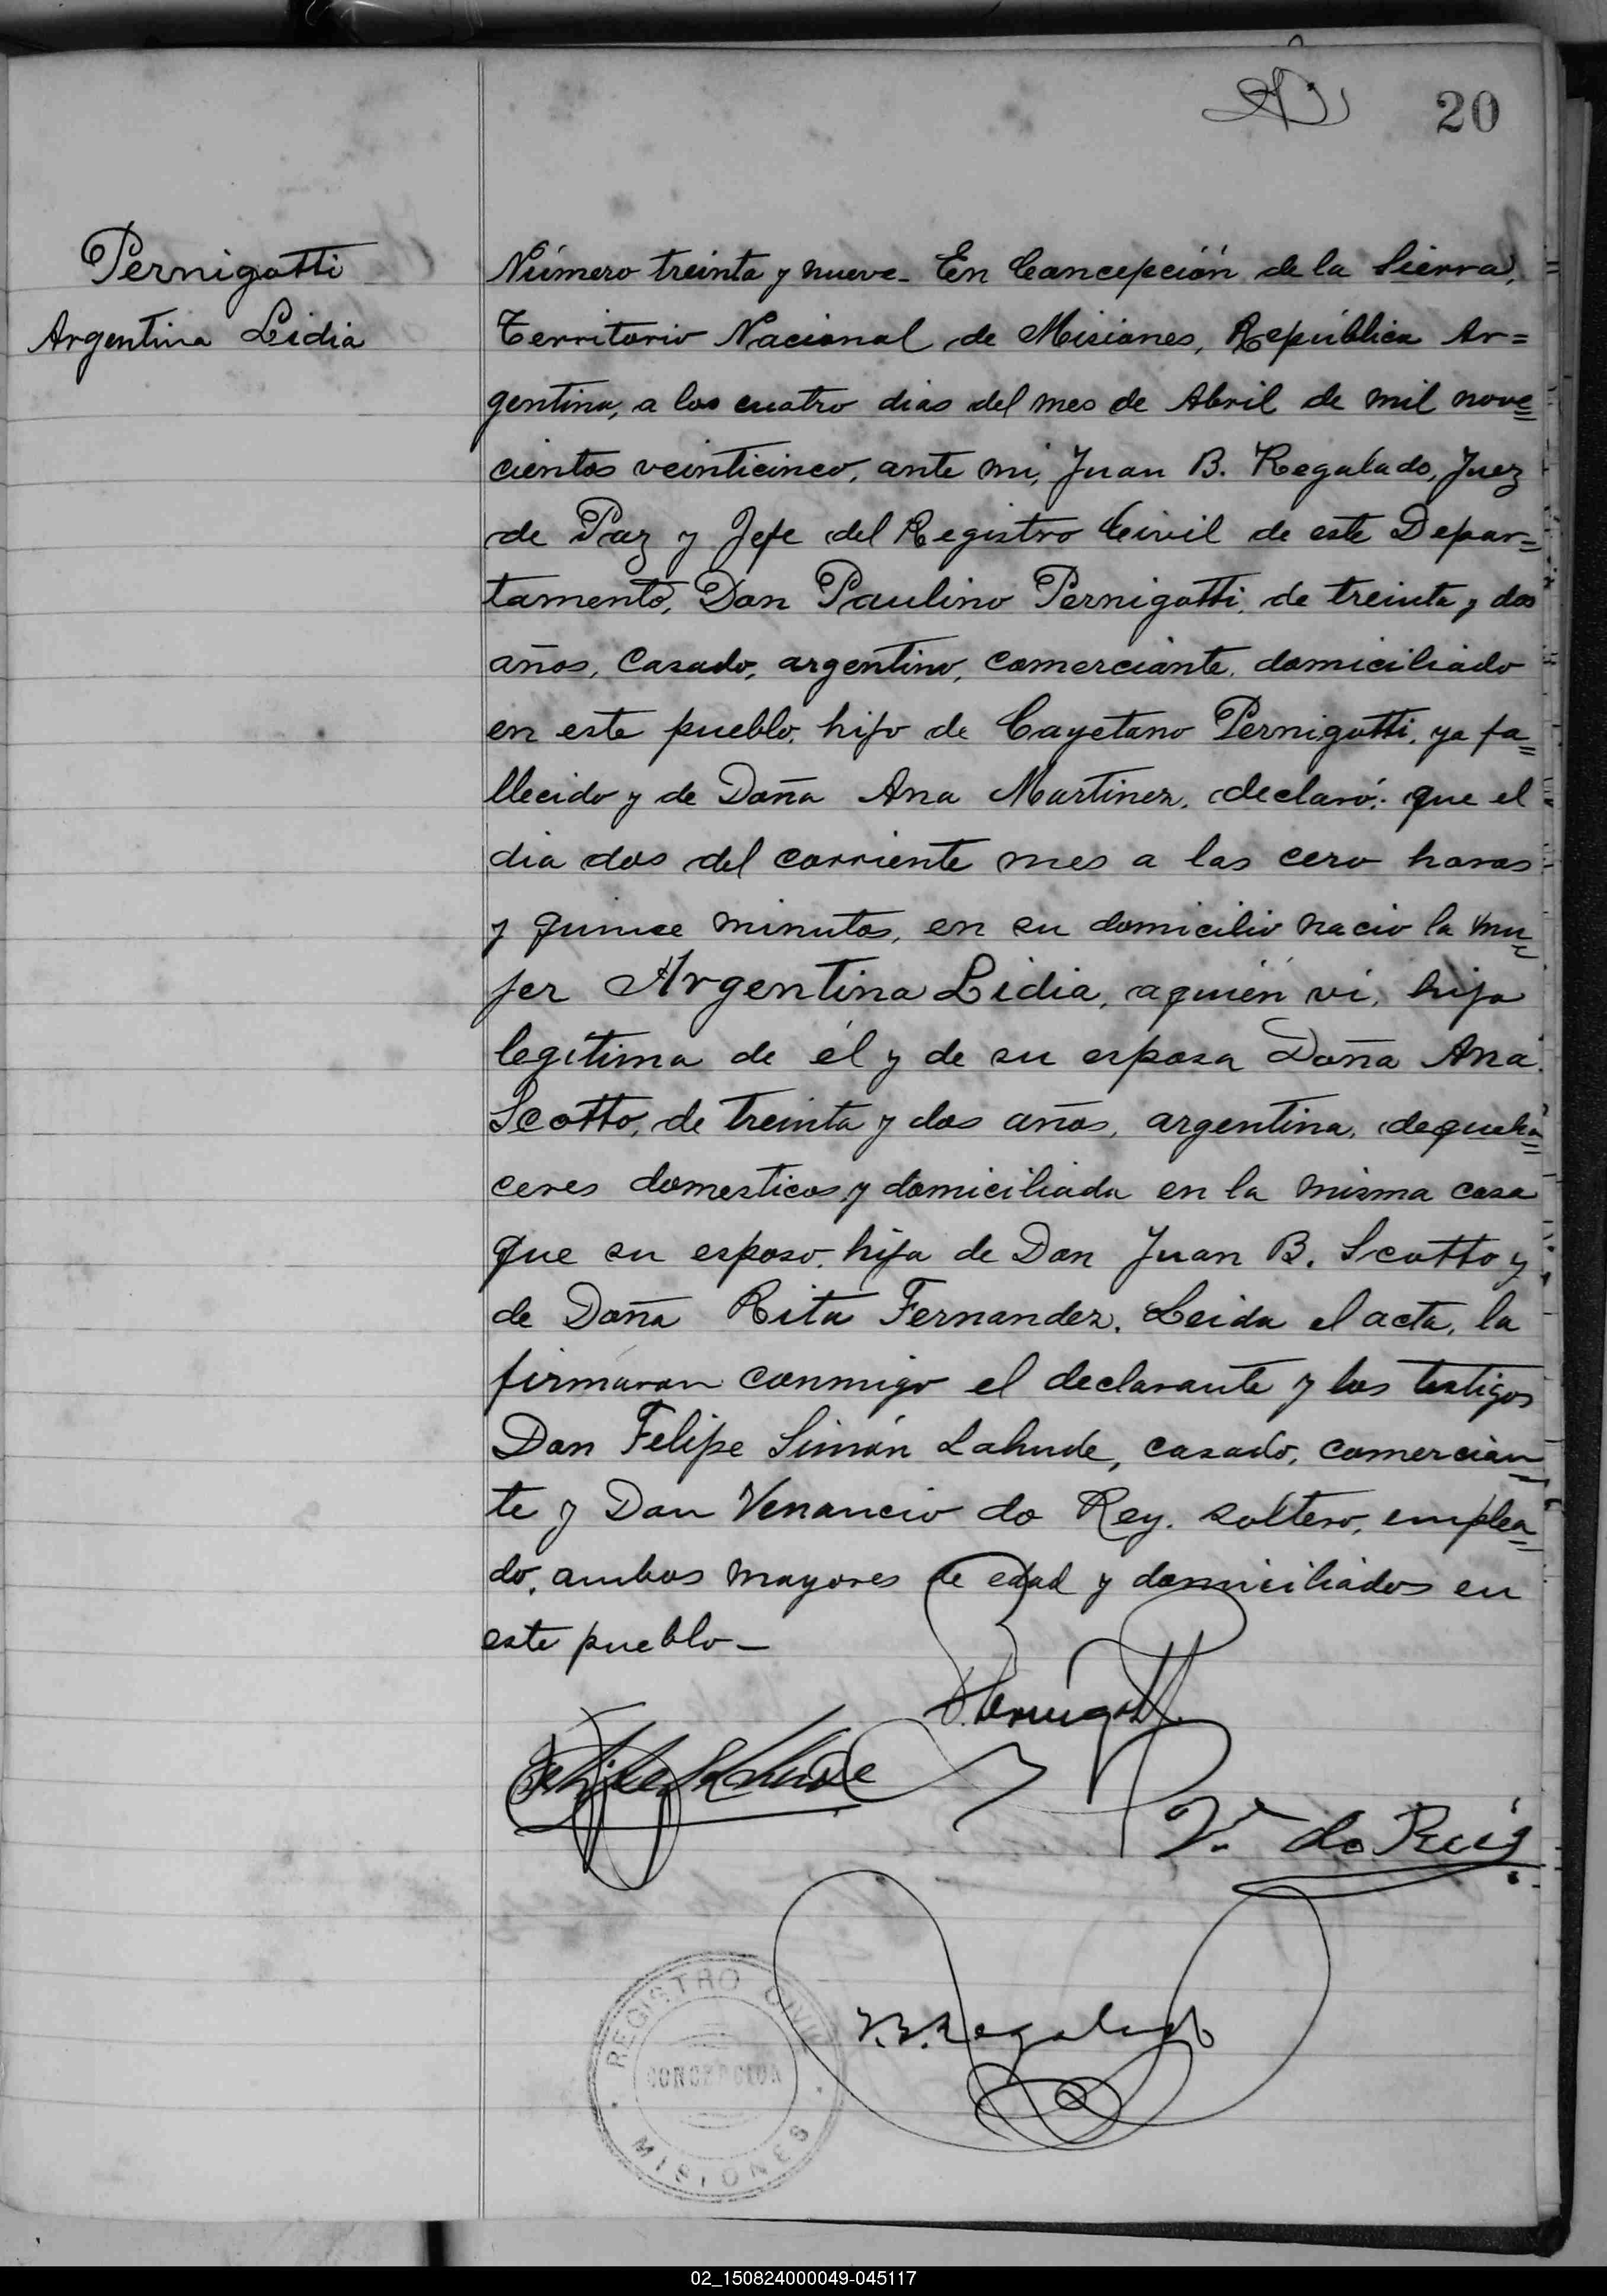 20
Pernigotti
Argentina Lidia
Número treinta y nueve_ En Concepción de la Sierra,
Territorio Nacional de Misiones, República Ar=
gentina, a los cuatro dias del mes de Abril de mil nove=
cientos veinticinco, ante mi, Juan B. Regalado, Juez
de Paz y Jefe del Registro Civil de este Depar=
tamento, Don Paulino Pernigotti, de treinta y dos
años, casado, argentino, comerciante, domiciliado
en este pueblo, hijo de Cayetano Pernigotti, ya fa=
llecido y de Doña Ana Martinez, declaró: que el
dia dos del corriente mes a las cero horas
y quince minutos, en su domicilio nacio la mu=
jer Argentina Lidia, a quién vi, hija
legítima de él y de su esposa Doña Ana
Scotto, de treinta y dos años, argentina, de queha=
ceres domesticos y domiciliada en la misma casa
que su esposo, hija de Don Juan B. Scotto y
de Doña Rita Fernandez. Leida el acta, la
firmaron conmigo el declarante y los testigos
Don Felipe Simón Lahude, casado, comercian=
te y Don Venancio do Rey, soltero, emplea=
do, ambos mayores de edad y domiciliados en
este pueblo_
P. Pernigotti
Felipe S. Lahude
V. do Rey
J. B. Regalado
REGISTRO CIVIL
CONCEPCION
MISIONES
02_150824000049-045117